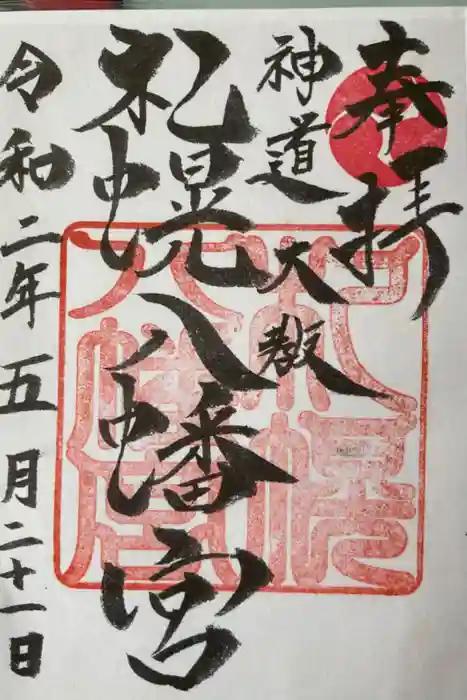 奉拝
神道大教
札幌八幡宮
令和二年五月二十一日
札幌
八幡宮